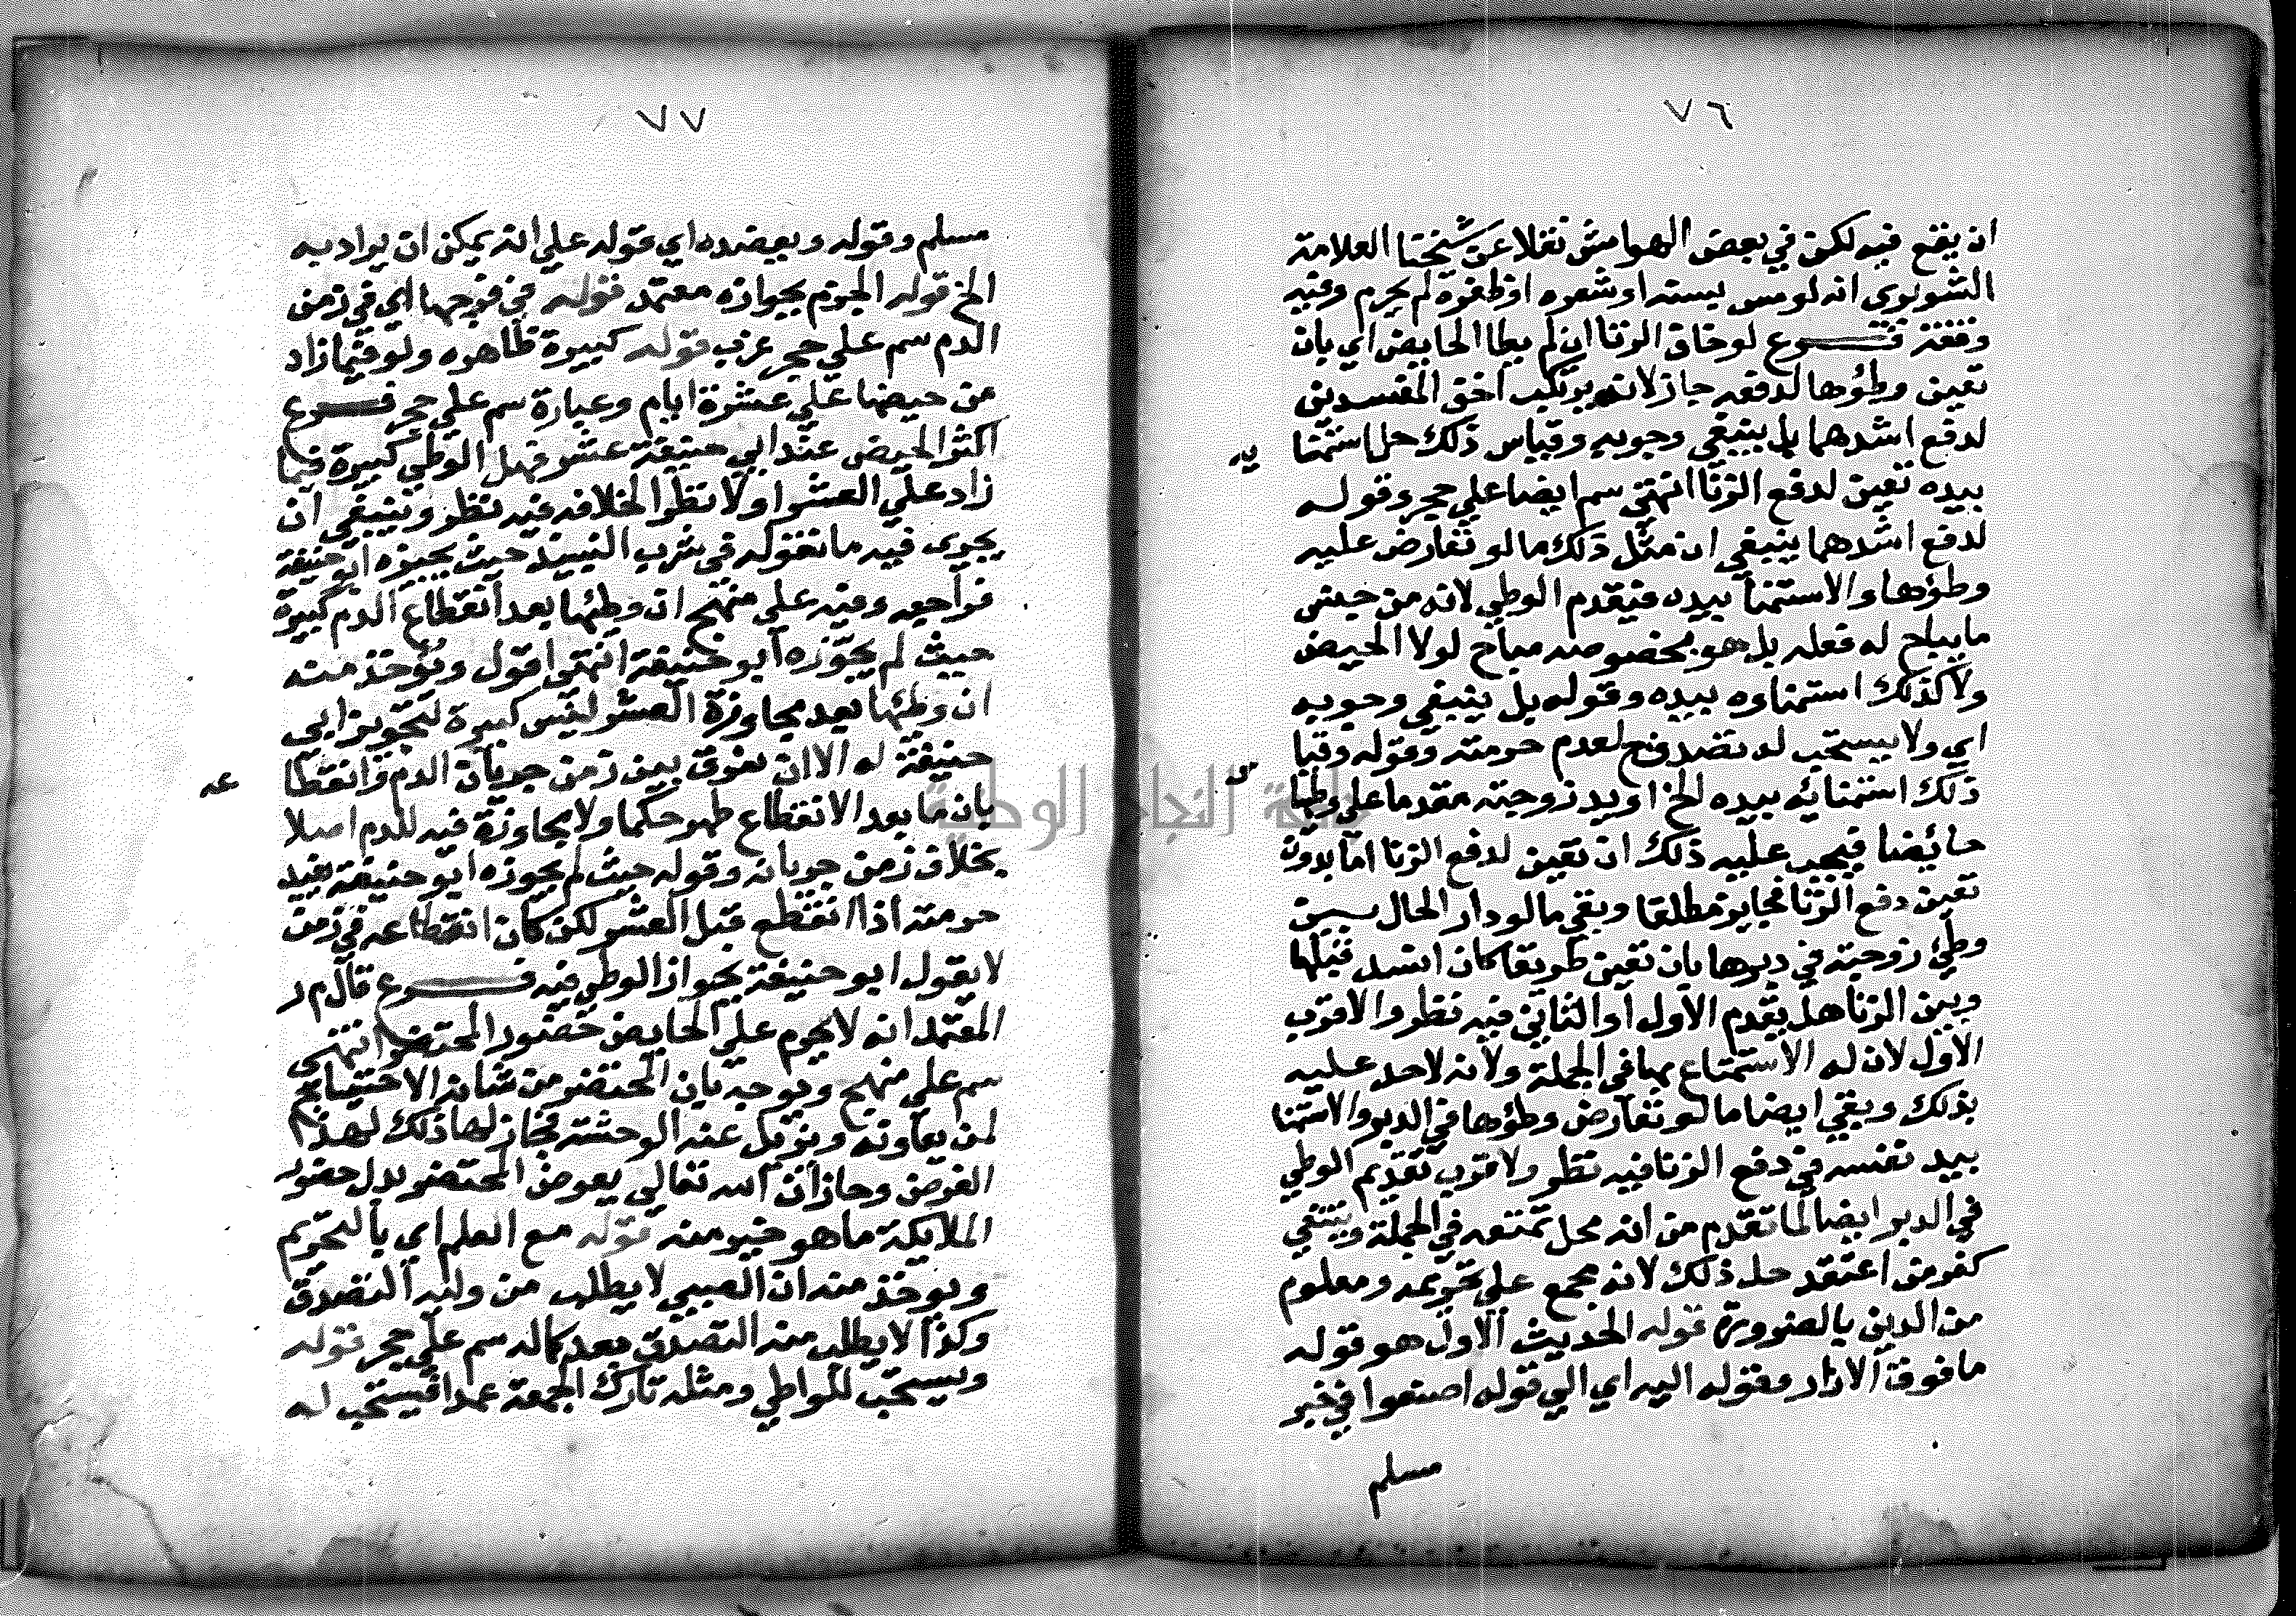 ٧٦
ان يقع فيه لكن في بعض الهوامش نقلا عن شيخنا العلامة
الشوبري انه لو مس بسنه او شعره او ظفره لم يحرم وفيه
وقفة فرع لو خاف الزنا ان لم يطا الحايض اي بان
تعين وطؤها لدفعه جاز لانه يرتكب اخق المفسدين
لدفع اشدهما بل ينبغي وجوبه وقياس ذلك حل استمنا
يه
بيده تعين لدفع الزنا انتهى سم ايضا علي حجر وقوله
لدفع اشدهما ينبغي ان مثل ذلك ما لو تعارض عليه
وطؤها والاستمنا بيده فيقدم الوطي لانه من جنس
ما يباح له فعله بل هو بخصوصه مباح لولا الحيض
ولا كذلك استمناوه بيده وقوله بل ينبغي وجوبه
اي ولا يستحب له تصدق ح لعدم حرمته وقوله وقيا
س
ذلك استمنائه بيده الخ او يد زوجته مقدما علي وطيها
حائضا فيجب عليه ذلك ان تعين لدفع الزنا اما بدون
تعين دفع الزنا فجايز مطلقا وبقي ما لو دار الحال بين
وطي زوجته في دبرها بان تعين طريقا كان انسد قبلها
وبين الزنا هل يقدم الاول او الثاني فيه نظر والاقرب
الاول لان له الاستمتاع بها في الجملة ولانه لا حد عليه
بذلك وبقي ايضا ما لو تعارض وطؤها في الدبر والاستمنا
بيد نفسه في دفع الزنا فيه نظر ولاقرب تقديم الوطي
في الدبر ايضا لما تقدم من انه محل تمتعه في الجملة وينتفي
كفر من اعتقد حل ذلك لانه مجمع علي تحريمه ومعلوم
من الدين بالضرورة قوله الحديث الاول هو قوله
ما فوق الازار وقوله اليه اي الي قوله اصنعوا في خبر
مسلم
٧٧
مسلم وقوله وبعضده اي قوله علي انه يمكن ان يراد به
الخ قوله الجزم بجوازه معتمد قوله في فرجها اي في زمن
الدم سم علي حجر عزب قوله كبيرة ظاهره ولو فيما زاد
من حيضها علي عشرة ايام وعبارة سم علي حجر فرع
اكثر الحيض عند ابي حنيفة عشر فهل الوطي كبيرة فيما
زاد علي العشر او لا نظرا لخلافه فيه نظر وينبغي ان
يجري فيه ما نقوله في شرب النبيذ حيث يجيزه ابو حنيفة
فراجعه وفيه علي منهج ان وطئها بعد انقطاع الدم كبيرة
حيث لم يجوزه ابو حنيفة انتهى اقول ويؤخذ منه
ان وطئها بعد مجاوزة العشر ليس كبيرة لتجويز ابي
حنيفة له الا ان يفرق بين زمن جريان الدم وانقطا
عه
بان ما بعد الانقطاع طهر حكما ولا مجاوزة فيه للدم اصلا
بخلاف زمن جريانه وقوله حيث لم يجوزه ابو حنيفة يفيد
حرمته اذا انقطع قبل العشر لكن كان انقطاعه في زمن
لا يقول ابو حنيفة بجواز الوطي فيه فرع قال م ر
المعتمد انه لا يحرم علي الحايض حضور المحتضر انتهى
سم علي منهج ويوجه بان المحتضر من شانه الاحتياج
لمن يعاونه ويزيل عنه الوحشة فجاز لها ذلك لهذا
الغرض وجاز ان الله تعالي يعوض المحتضر بدل حضور
الملايكة ما هو خير منه قوله مع العلم اي بالتحريم
ويوخذ منه ان الصبي لا يطلب من وليه التصدق
وكذا لا يطلب منه التصدق بعد كماله سم علي حجر قوله
ويستحب للواطي ومثله تارك الجمعة عمدا فيستحب له
جامعة النجاح الوطنية